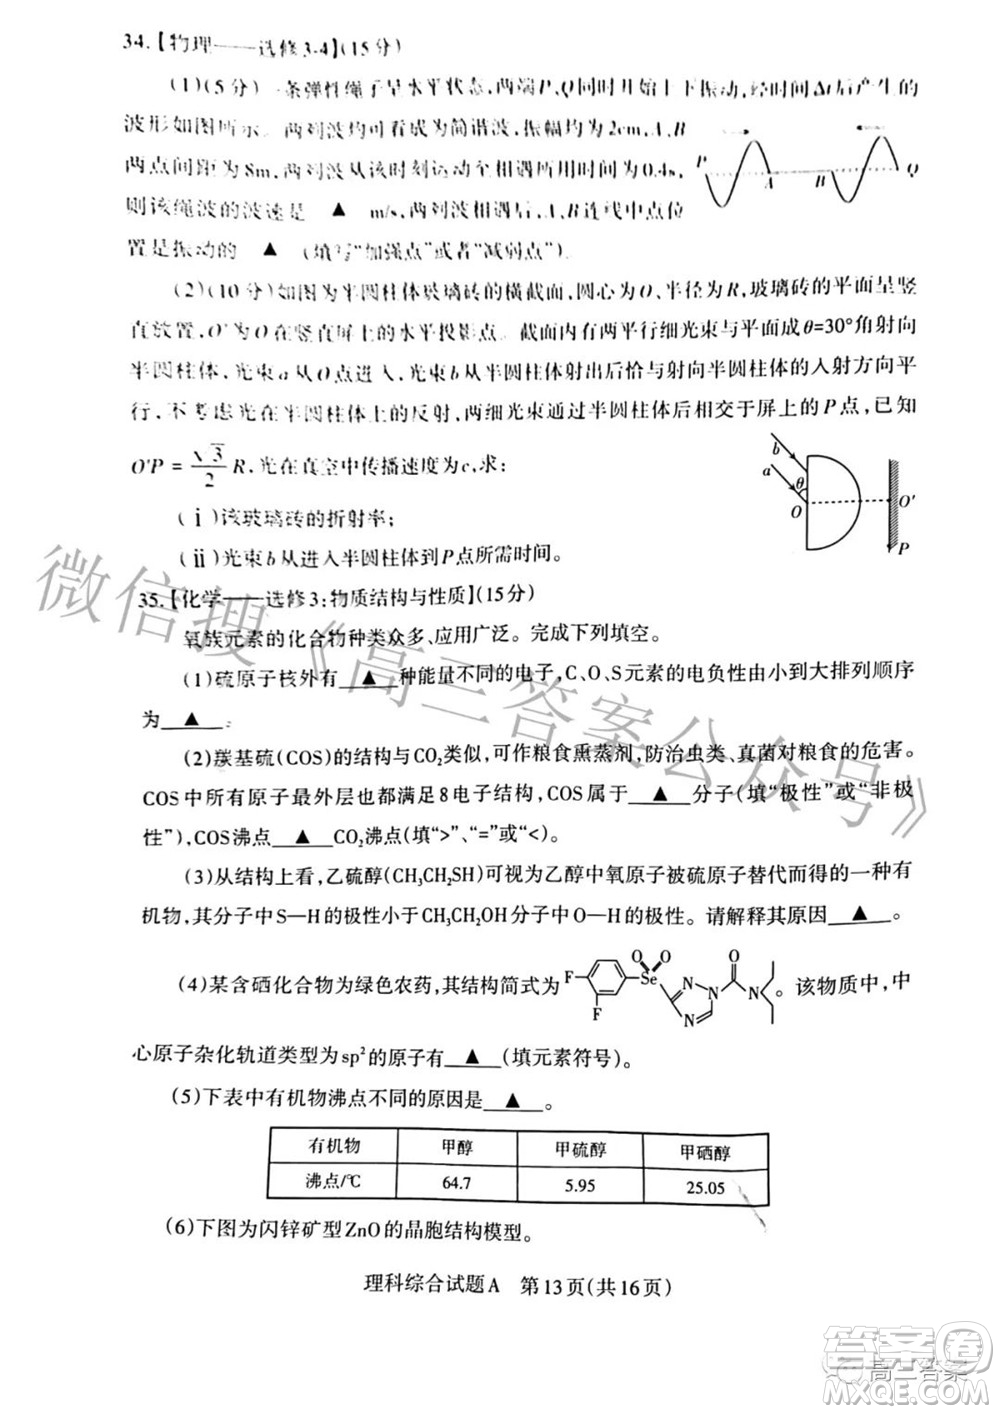 34.【物理——选修3-4】(15分)
(1)(5分)一条弹性绳子呈水平状态,两端P、Q同时开始上下振动,经时间Δt后产生的
波形如图所示。两列波均可看成为简谐波,振幅均为2cm,A、B
两点间距为8m,两列波从该时刻运动至相遇所用的时间为0.4s,
则该绳波的波速是 ▲ m/s,两列波相遇后,A、B连线中点位
置是振动的 ▲ (填写“加强点”或者“减弱点”)。
P A B Q
(2)(10分)如图为半圆柱体玻璃砖的横截面,圆心为O、半径为R,玻璃砖的平面呈竖
直放置,O′为O在竖直屏上的水平投影点。截面内有两平行细光束与平面成θ=30°角射向
半圆柱体,光束a从O点进入,光束b从半圆柱体射出后恰与射向半圆柱体的入射方向平
行,不考虑光在半圆柱体上的反射,两细光束通过半圆柱体后相交于屏上的P点,已知
O′P = √3/2 R,光在真空中传播速度为c,求:
(ⅰ)该玻璃砖的折射率;
(ⅱ)光束b从进入半圆柱体到P点所需时间。
b a θ O O′ P
35.【化学——选修3:物质结构与性质】(15分)
氧族元素的化合物种类众多、应用广泛。完成下列填空。
(1)硫原子核外有 ▲ 种能量不同的电子,C、O、S元素的电负性由小到大排列顺序
为 ▲ 。
(2)羰基硫(COS)的结构与CO2类似,可作粮食熏蒸剂,防治虫类、真菌对粮食的危害。
COS中所有原子最外层也都满足8电子结构,COS属于 ▲ 分子(填“极性”或“非极
性”),COS沸点 ▲ CO2沸点(填“>”、“=”或“<”)。
(3)从结构上看,乙硫醇(CH3CH2SH)可视为乙醇中氧原子被硫原子替代而得的一种有
机物,其分子中S—H的极性小于CH3CH2OH分子中O—H的极性。请解释其原因 ▲ 。
(4)某含硒化合物为绿色农药,其结构简式为 F F O O Se N N N O N 。该物质中,中
心原子杂化轨道类型为sp2的原子有 ▲ (填元素符号)。
(5)下表中有机物沸点不同的原因是 ▲ 。
有机物 甲醇 甲硫醇 甲硒醇
沸点/℃ 64.7 5.95 25.05
(6)下图为闪锌矿型ZnO的晶胞结构模型。
理科综合试题A 第13页(共16页)
微信搜《高三答案公众号》
答案圈
高三答案
MXQE.COM